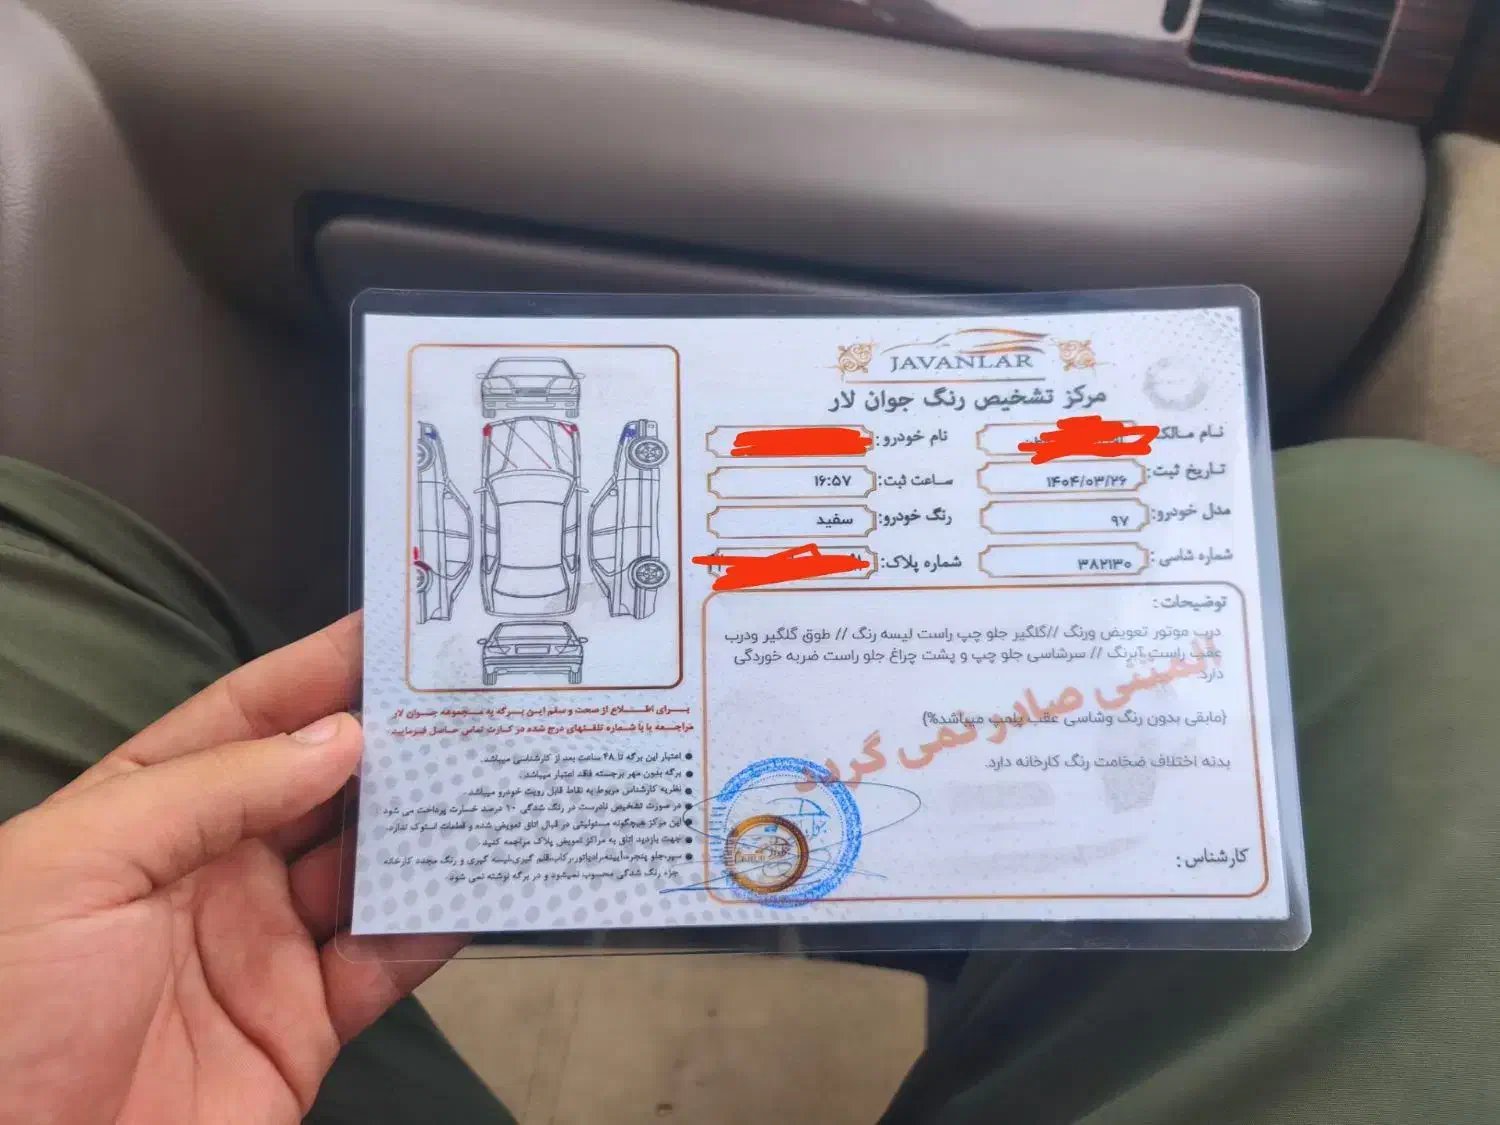 JAVANLAR
مرکز تشخیص رنگ جوان لار
نام مالک
نام خودرو:
تاریخ ثبت: ۱۴۰۴/۰۳/۲۶
ساعت ثبت: ۱۶:۵۷
مدل خودرو: ۹۷
رنگ خودرو: سفید
شماره شاسی: ۳۸۲۱۳۰
شماره پلاک:
توضیحات:
درب موتور تعویض ورنگ //گلگیر جلو چپ راست لیسه رنگ // طوق گلگیر ودرب
عقب راست آبرنگ // سرشاسی جلو چپ و پشت چراغ جلو راست ضربه خوردگی
دارد
{مابقی بدون رنگ وشاسی عقب پلمپ میباشد%}
بدنه اختلاف ضخامت رنگ کارخانه دارد.
المثنی صادر نمی گردد
کارشناس:
بـرای اطـلاع از صحت و سقم این بـرگه به مـجموعه جـوان لار
مراجعه یا با شماره تلفنهای درج شده در کارت تماس حاصل فرمایید.
● اعتبار این برگه تا ۴۸ ساعت بعد از کارشناسی میباشد.
● برگه بدون مهر برجسته فاقد اعتبار میباشد.
● نظریه کارشناس مربوط به نقاط قابل رویت خودرو میباشد
● در صورت تشخیص نادرست در رنگ شدگی ۱۰ درصد خسارت پرداخت می شود
● این مرکز هیچگونه مسئولیتی در قبال اتاق تعویض شده و قطعات استوک ندارد.
● جهت بازدید اتاق به مراکز تعویض پلاک مراجعه کنید.
● سپر،جلو پنجره،آیینه،رادیاتور،رکاب،قلم گیری،لیسه گیری و رنگ مجدد کارخانه
جزء رنگ شدگی محسوب نمیشود و در برگه نوشته نمی شود.